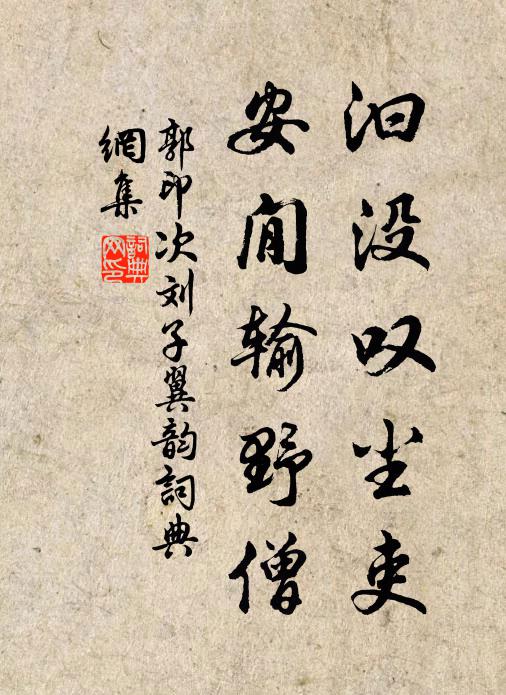 汩没叹尘吏
安闲输野僧
郭印次刘子翼韵詞典
網集
詞典网印